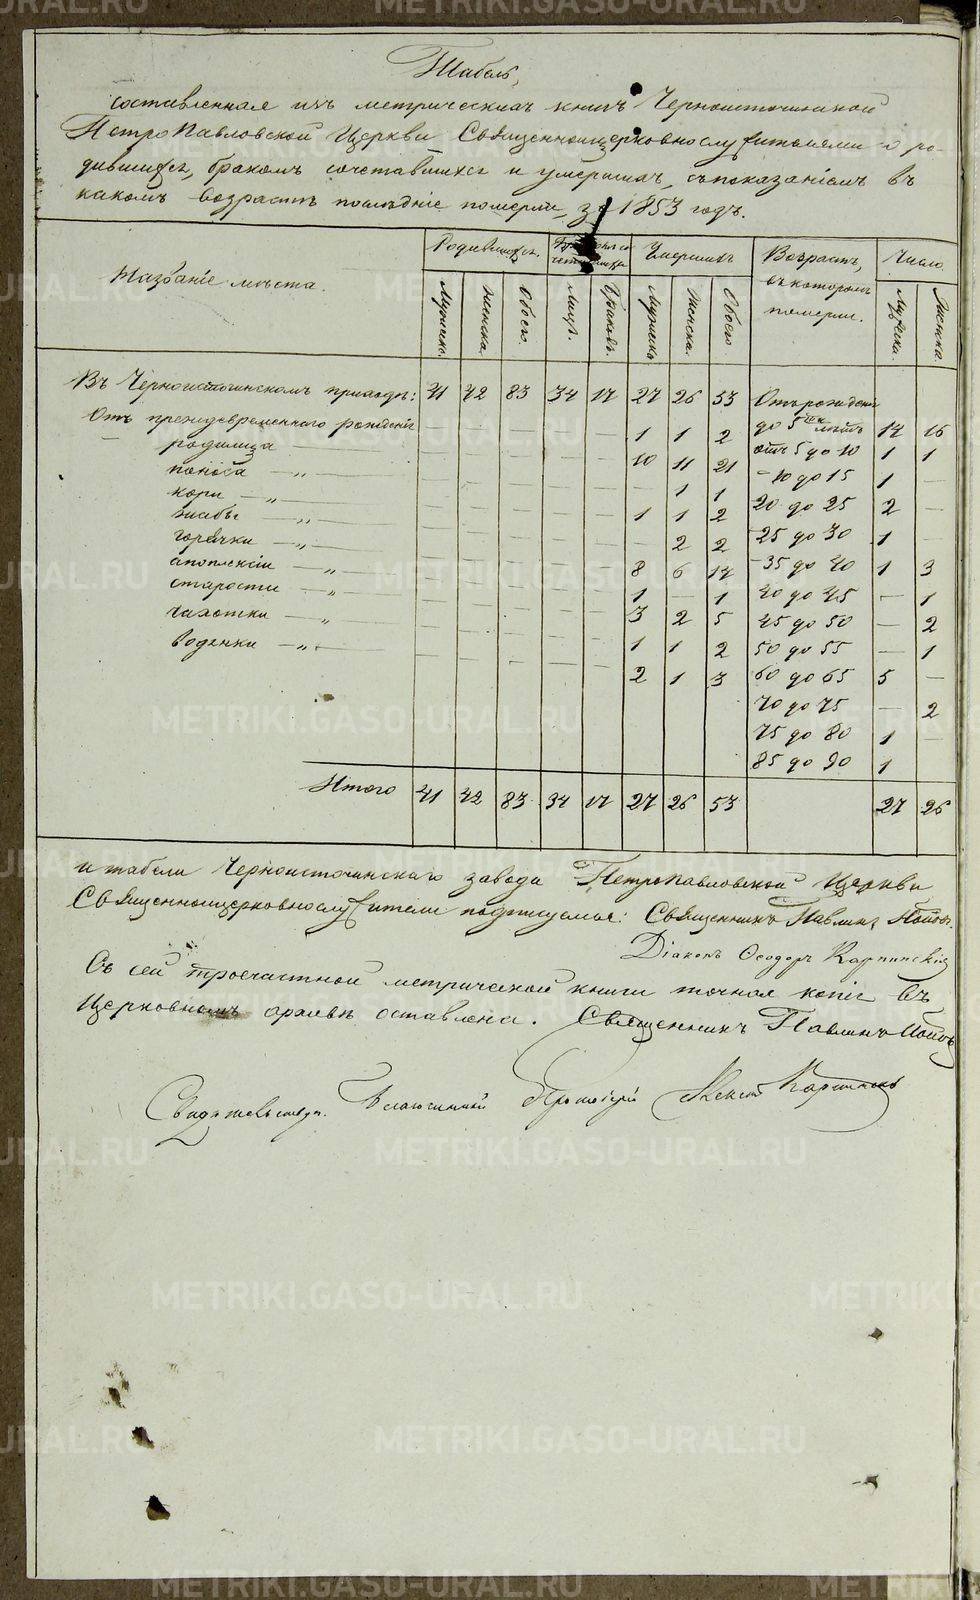 Табель,
составленная изъ метрическихъ книгъ Черноисточинской
ПетроПавловской Церкви Священноицерковнослужителями о ро-
дившихся, бракомъ сочетавшихся и умершихъ, съ показаніемъ въ
какомъ возрастѣ послѣдніе померли, за 1853 годъ.
Названіе мѣста. Родившихся. Умершихъ Возрастъ, въ которомъ померли. Число
Мужеска. Женска. Обоего. Лицъ. Браковъ. Мужеска Женска. Обоего. Мужеска. Женска.
Въ Черноисточинскомъ приходѣ: 41 42 83 34 17 27 26 53 Отъ рожденія
Отъ преждевременнаго рожденія — — — — — 1 1 2 до 5ти лѣтъ 14 16
родимца — — — — — — 10 11 21 отъ 5 до 10 1 1
поноса — „ — — — — — — 1 1 — 10 до 15 1 —
кори — „ — — — — — 1 1 2 20 до 25 2 —
жабы — „ — — — — — — 2 2 — 25 до 30 1 —
горячки — „ — — — — — 8 6 14 — 35 до 40 1 3
апоплексіи — „ — — — — — 1 — 1 40 до 45 — 1
старости — „ — — — — — 3 2 5 45 до 50 — 2
чахотки — „ — — — — — 1 1 2 50 до 55 — 1
водянки — „ — — — — — 2 1 3 60 до 65 5 —
70 до 75 — 2
75 до 80 1 —
85 до 90 1
Итого 41 42 83 34 17 27 26 53 27 26
и табели Черноисточинскаго завода ПетроПавловской Церкви
Священноицерковнослужители подписуемся: Священникъ Павлинъ Поповъ.
Діаконъ Ѳеодоръ Карпинскій
Съ сей троечастной метрической книги точная копія въ
Церковномъ архивѣ оставлена. Священникъ Павлинъ Поповъ
Свидѣтельствув. Благочинный Протоіерей
METRIKI.GASO-URAL.RU